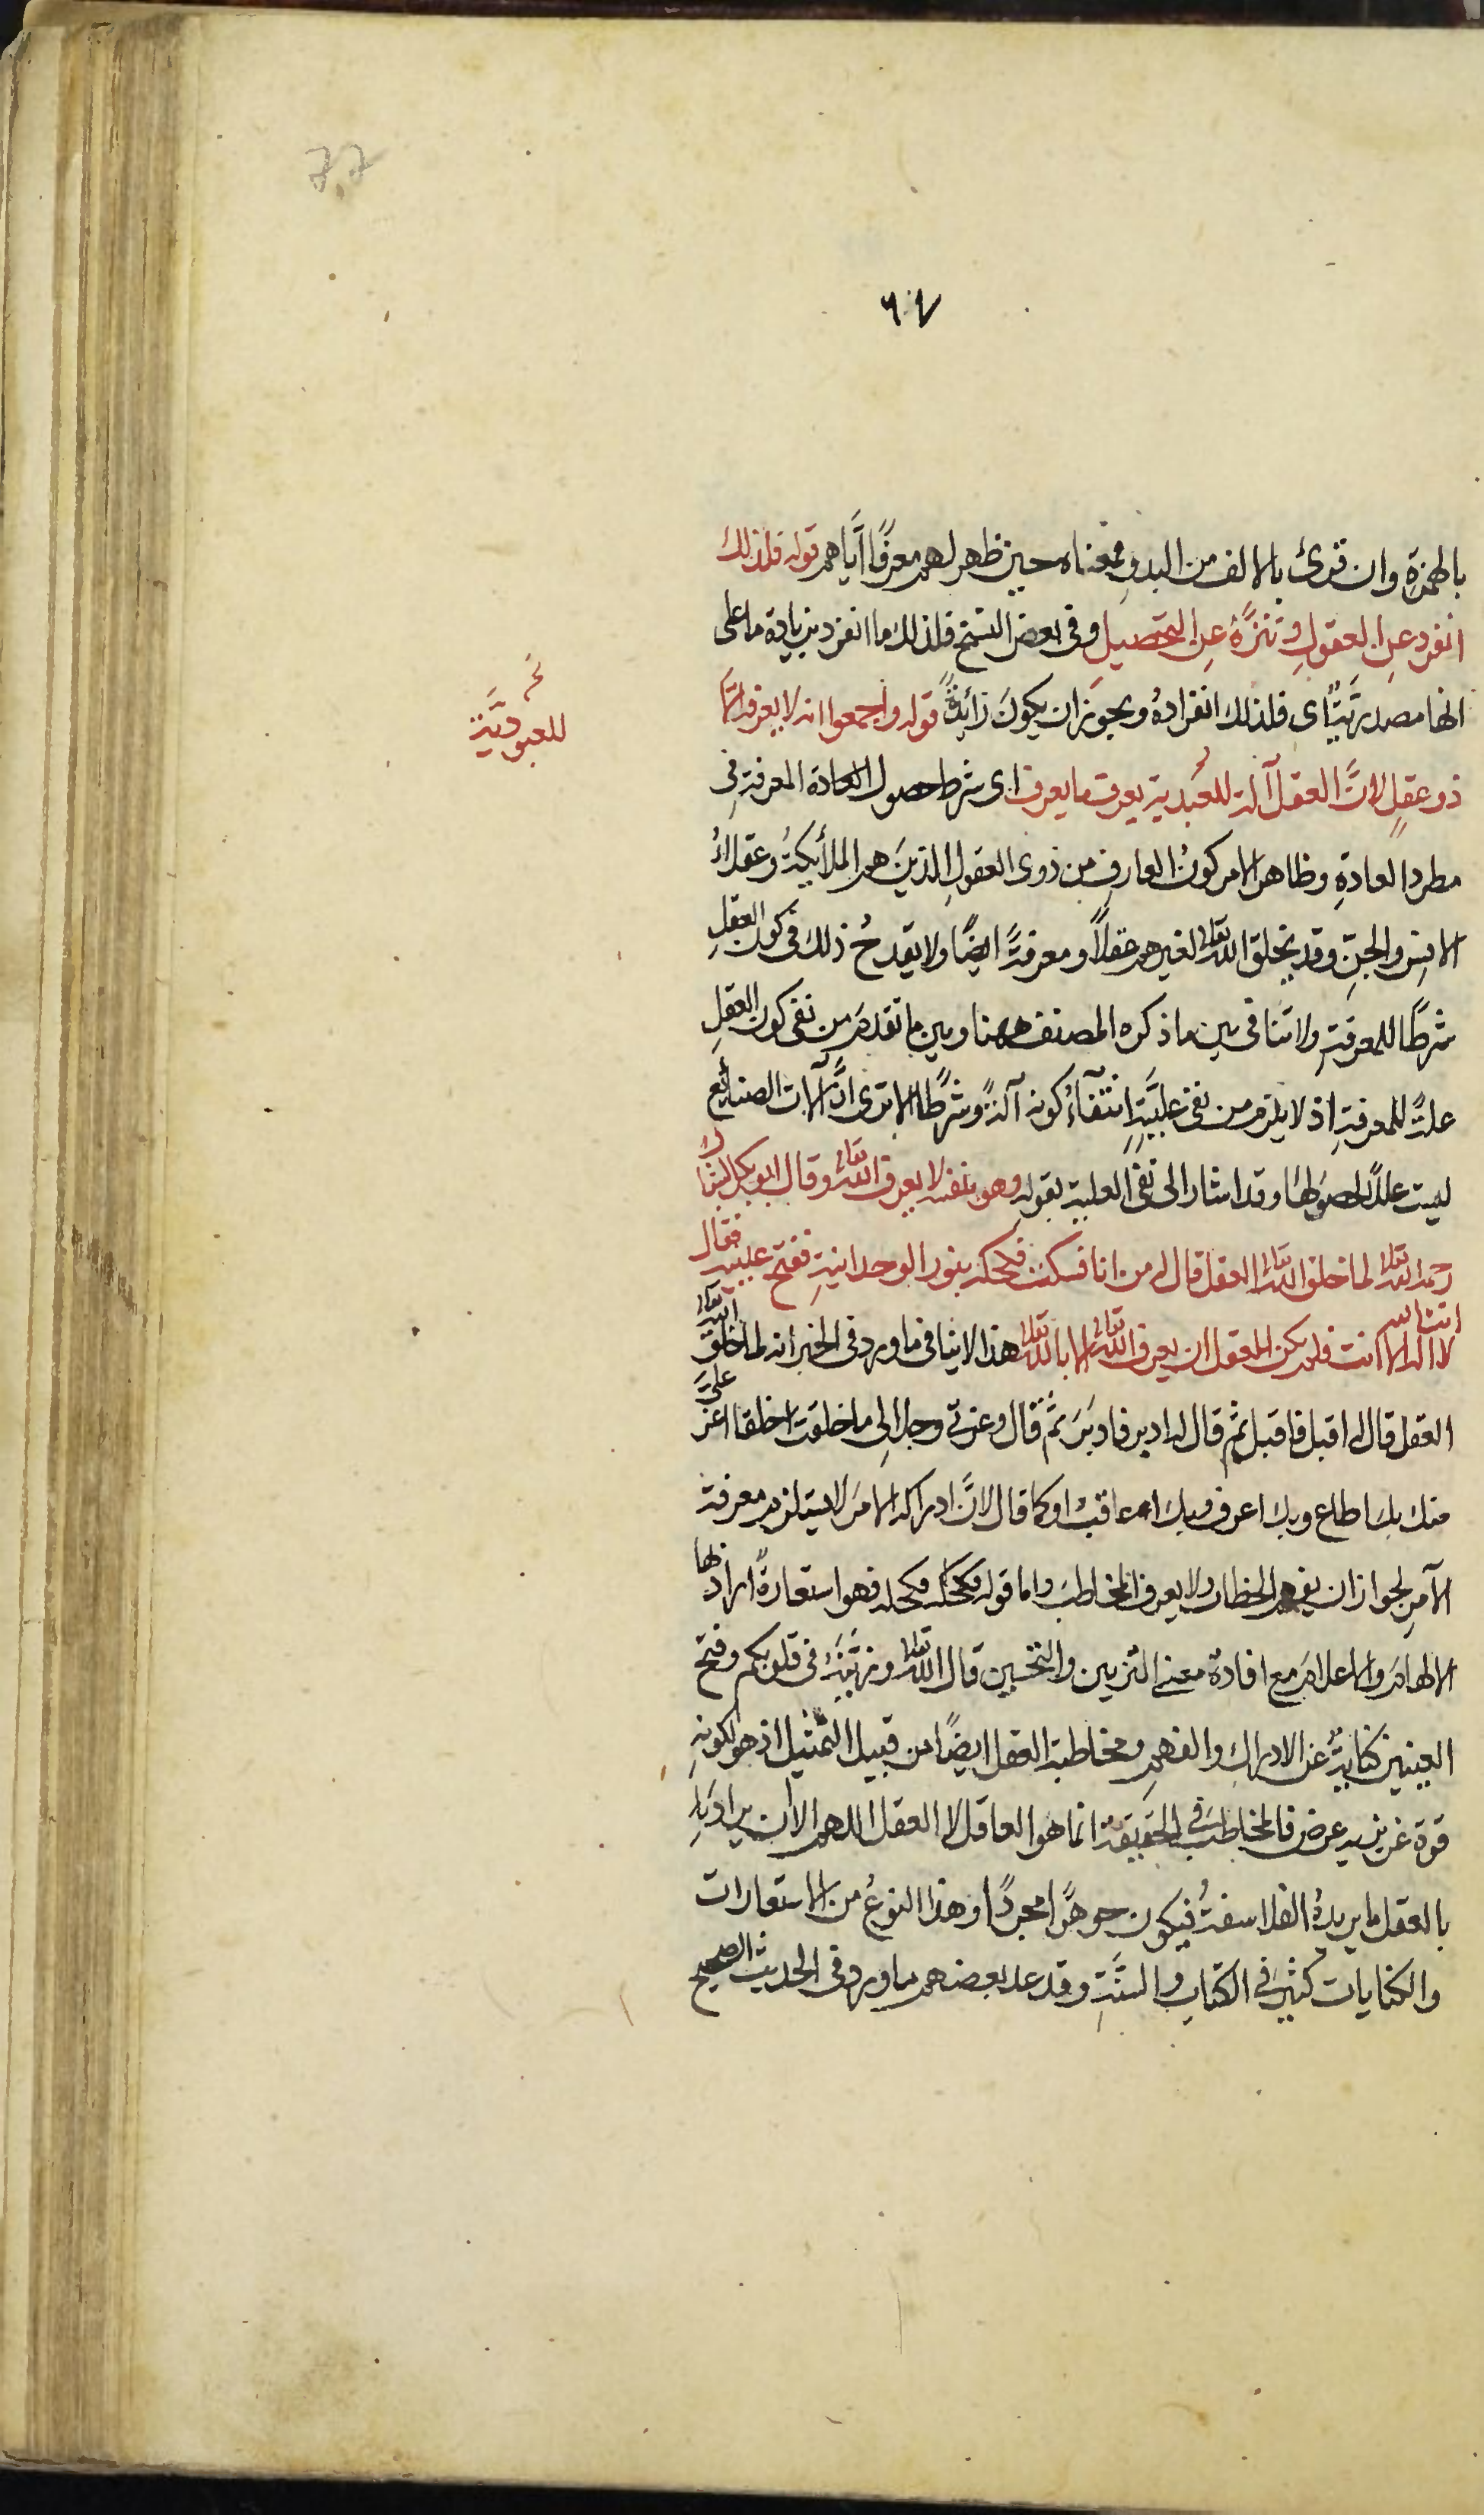 ٦٧
بالهمزة وان قرئ بالالف من البدو فمعناه حين ظهر لهم معرفًا اَيَاهم قوله فلذلك
انفرد عنِ العقولِ وتنزَّهَ عنِ التحصيلِ وفى بعض النسخ فلذلك ما انفرد بزيادة ما على
انها مصدريَّةٌ اى فلذلك انفرادهُ ويجوز ان يكونَ زائدةً قوله واجمعوا انه لا يعرفه الَّا
ذو عقلٍ لانَّ العقل آلة للعَبدية يعرف ما يعرف اى شرط حصول العادة المعرفة فى
للعبوديَّة
مطرد العادةِ وظاهر الامر كونُ العارفِ من ذوى العقولِ الذينَ هم الملائكةُ وعقلاءُ
الانسِ والجنِّ وقد يخلق اللّه تعالى لغيرهم عقلًا ومعرفةً ايضًا ولا يقدحُ ذلك فى كون العقلِ
شرطًا للمعرفةِ ولا تنافى بين ما ذكره المصنف ههنا وبين ما تقدمَ من نفى كون العقلِ
علةً للمعرفةِ اذ لا يلزم من نفى علّيَّتهِ انتفآءُ كونه آلةً وشرطًا الا ترى انَّ آلات الصنايع
ليست عللًا لحصولها وقد اشار الى نفى العلية بقوله وهو بنفسه لا يعرف اللّه تعالى وقال ابو بكر السَّبَّاك
رحمه اللّه تعالى لما خلق اللّه تعالى العقل قال له من انا فسكت فكحله بنور الوحدانيةِ ففتح عينيه فقال
انت اللّه
لا اله الا انت فلم يكن للعقل ان يعرف اللّه تعالى الا باللّه تعالى هذا لا ينافى ما ورد فى الخبر انه لما خلق اللّه تعالى
العقل قال له اقبل فاقبل ثم قال له ادبر فادبرَ ثمَّ قال وعزتى وجلالى ما خلقت خلقا اعز علىَّ
منك بك اطاع وبك اعرف وبك اعاقب او كما قال لانَّ ادراكه الامرَ لا يستلزم معرفة
الآمرِ لجواز ان يفهم الخطاب ولا يعرف المخاطبَ واما قوله فكحله فهو استعارةٌ اراد بها
الالهامَ والاعلامَ مع افادة معنى التزيين والتحسين قال اللّه تعالى وزيَّنَهُ فى قلوبكم وفتح
العينين كنايةٌ عن الادراك والفهمِ ومخاطبة العقل ايضًا من قبيل التمثيل اذ هو لكونهِ
قوة غريزيه عرض فالمخاطب فى الحقيقة انما هو العاقل لا العقل اللهم الا ان يراد بهِ
بالعقل ما يريدهُ الفلاسفةُ فيكون جوهرًا مجردًا وهذا النوعُ من الاستعارات
والكنايات كثيرٌ فى الكتابِ والسنَّةِ وقد عد بعضهم ما ورد فى الحديث الصحيح